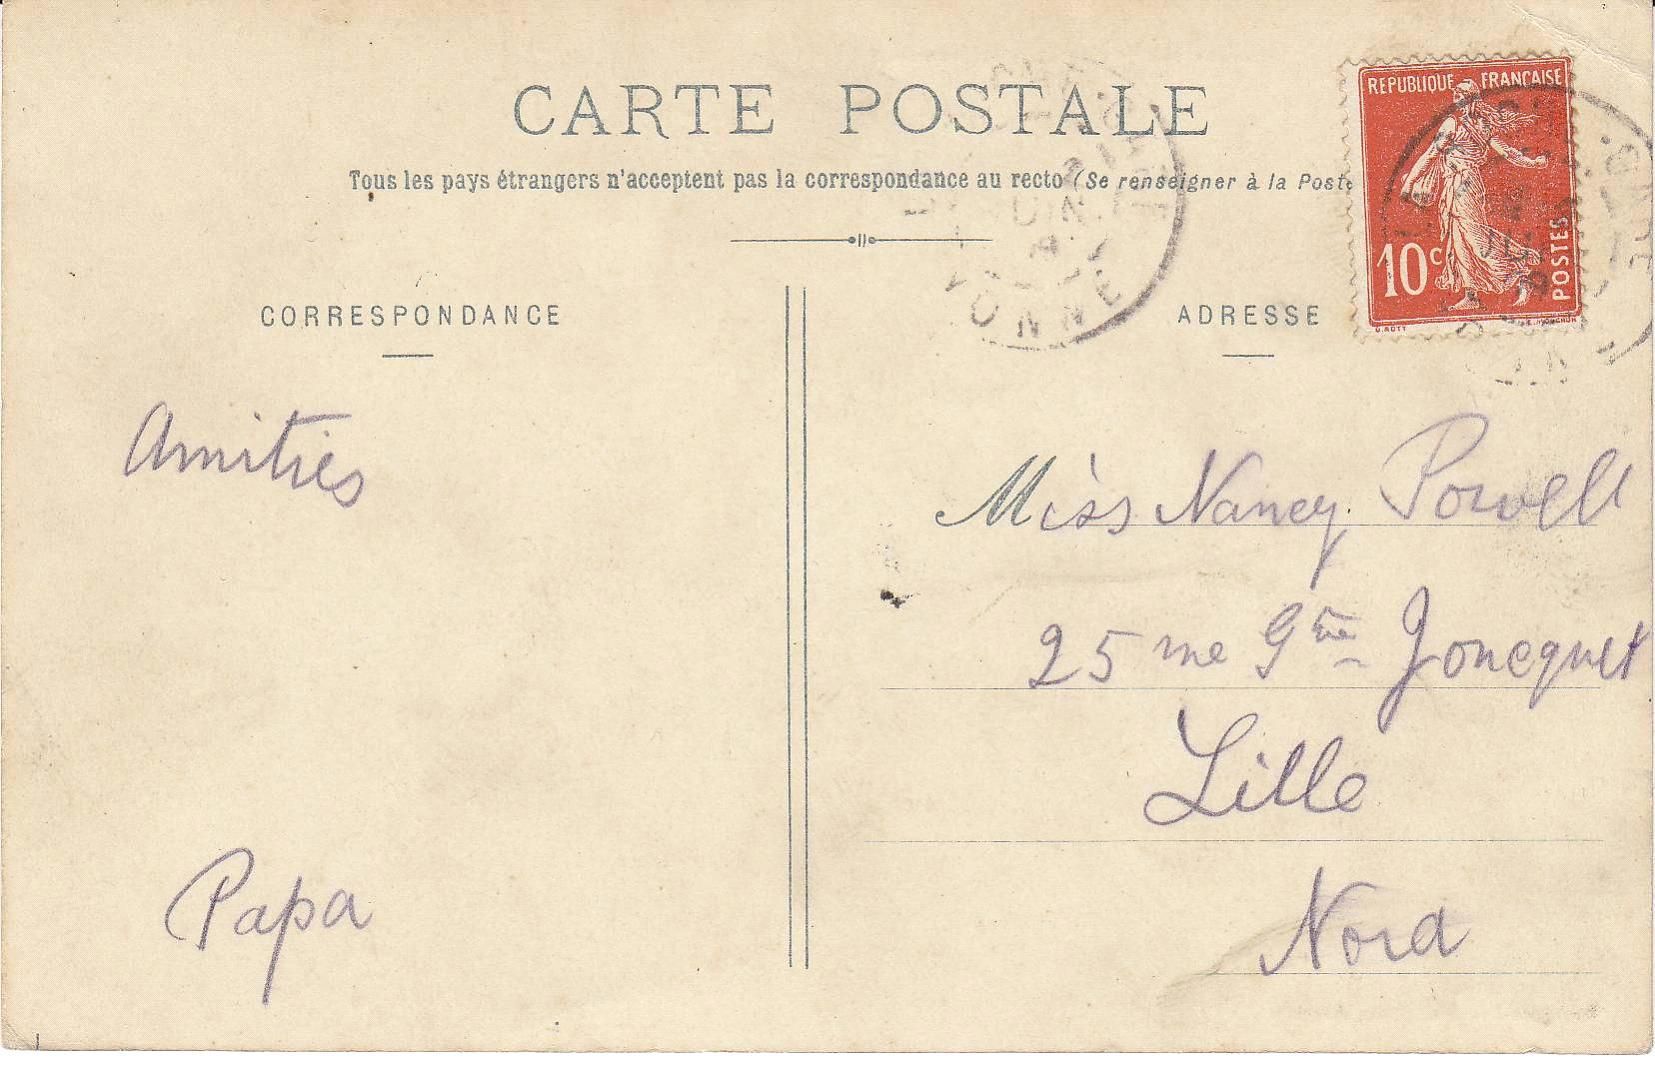 CARTE POSTALE
Tous les pays étrangers n'acceptent pas la correspondance au recto (Se renseigner à la Poste
REPUBLIQUE FRANÇAISE
10c
POSTES
O. ROTY
YONNE
CORRESPONDANCE
ADRESSE
Amitiés
Papa
Miss Nancy Powell
25 rue Gde Joncquet
Lille
Nord